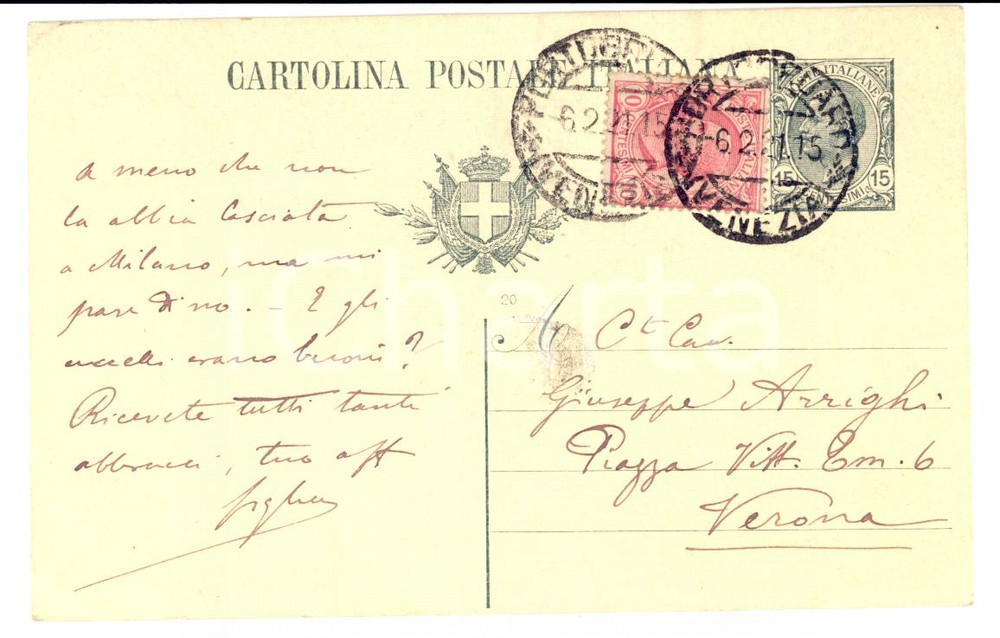 CARTOLINA POSTALE ITALIANA
6.2.21.15
(VENEZIA)
-6.2.21.15
(VENEZIA)
POSTE ITALIANE
15 CENTESIMI 15
a meno che non
la abbia lasciata
a Milano, ma mi
pare di no. - E gli
uccelli erano buoni?
Ricevete tutti tanti
abbracci, tuo aff
figlio
20
A
Ct. Cav.
Giuseppe Arrighi
Piazza Vitt. Em. 6
Verona
iCharta